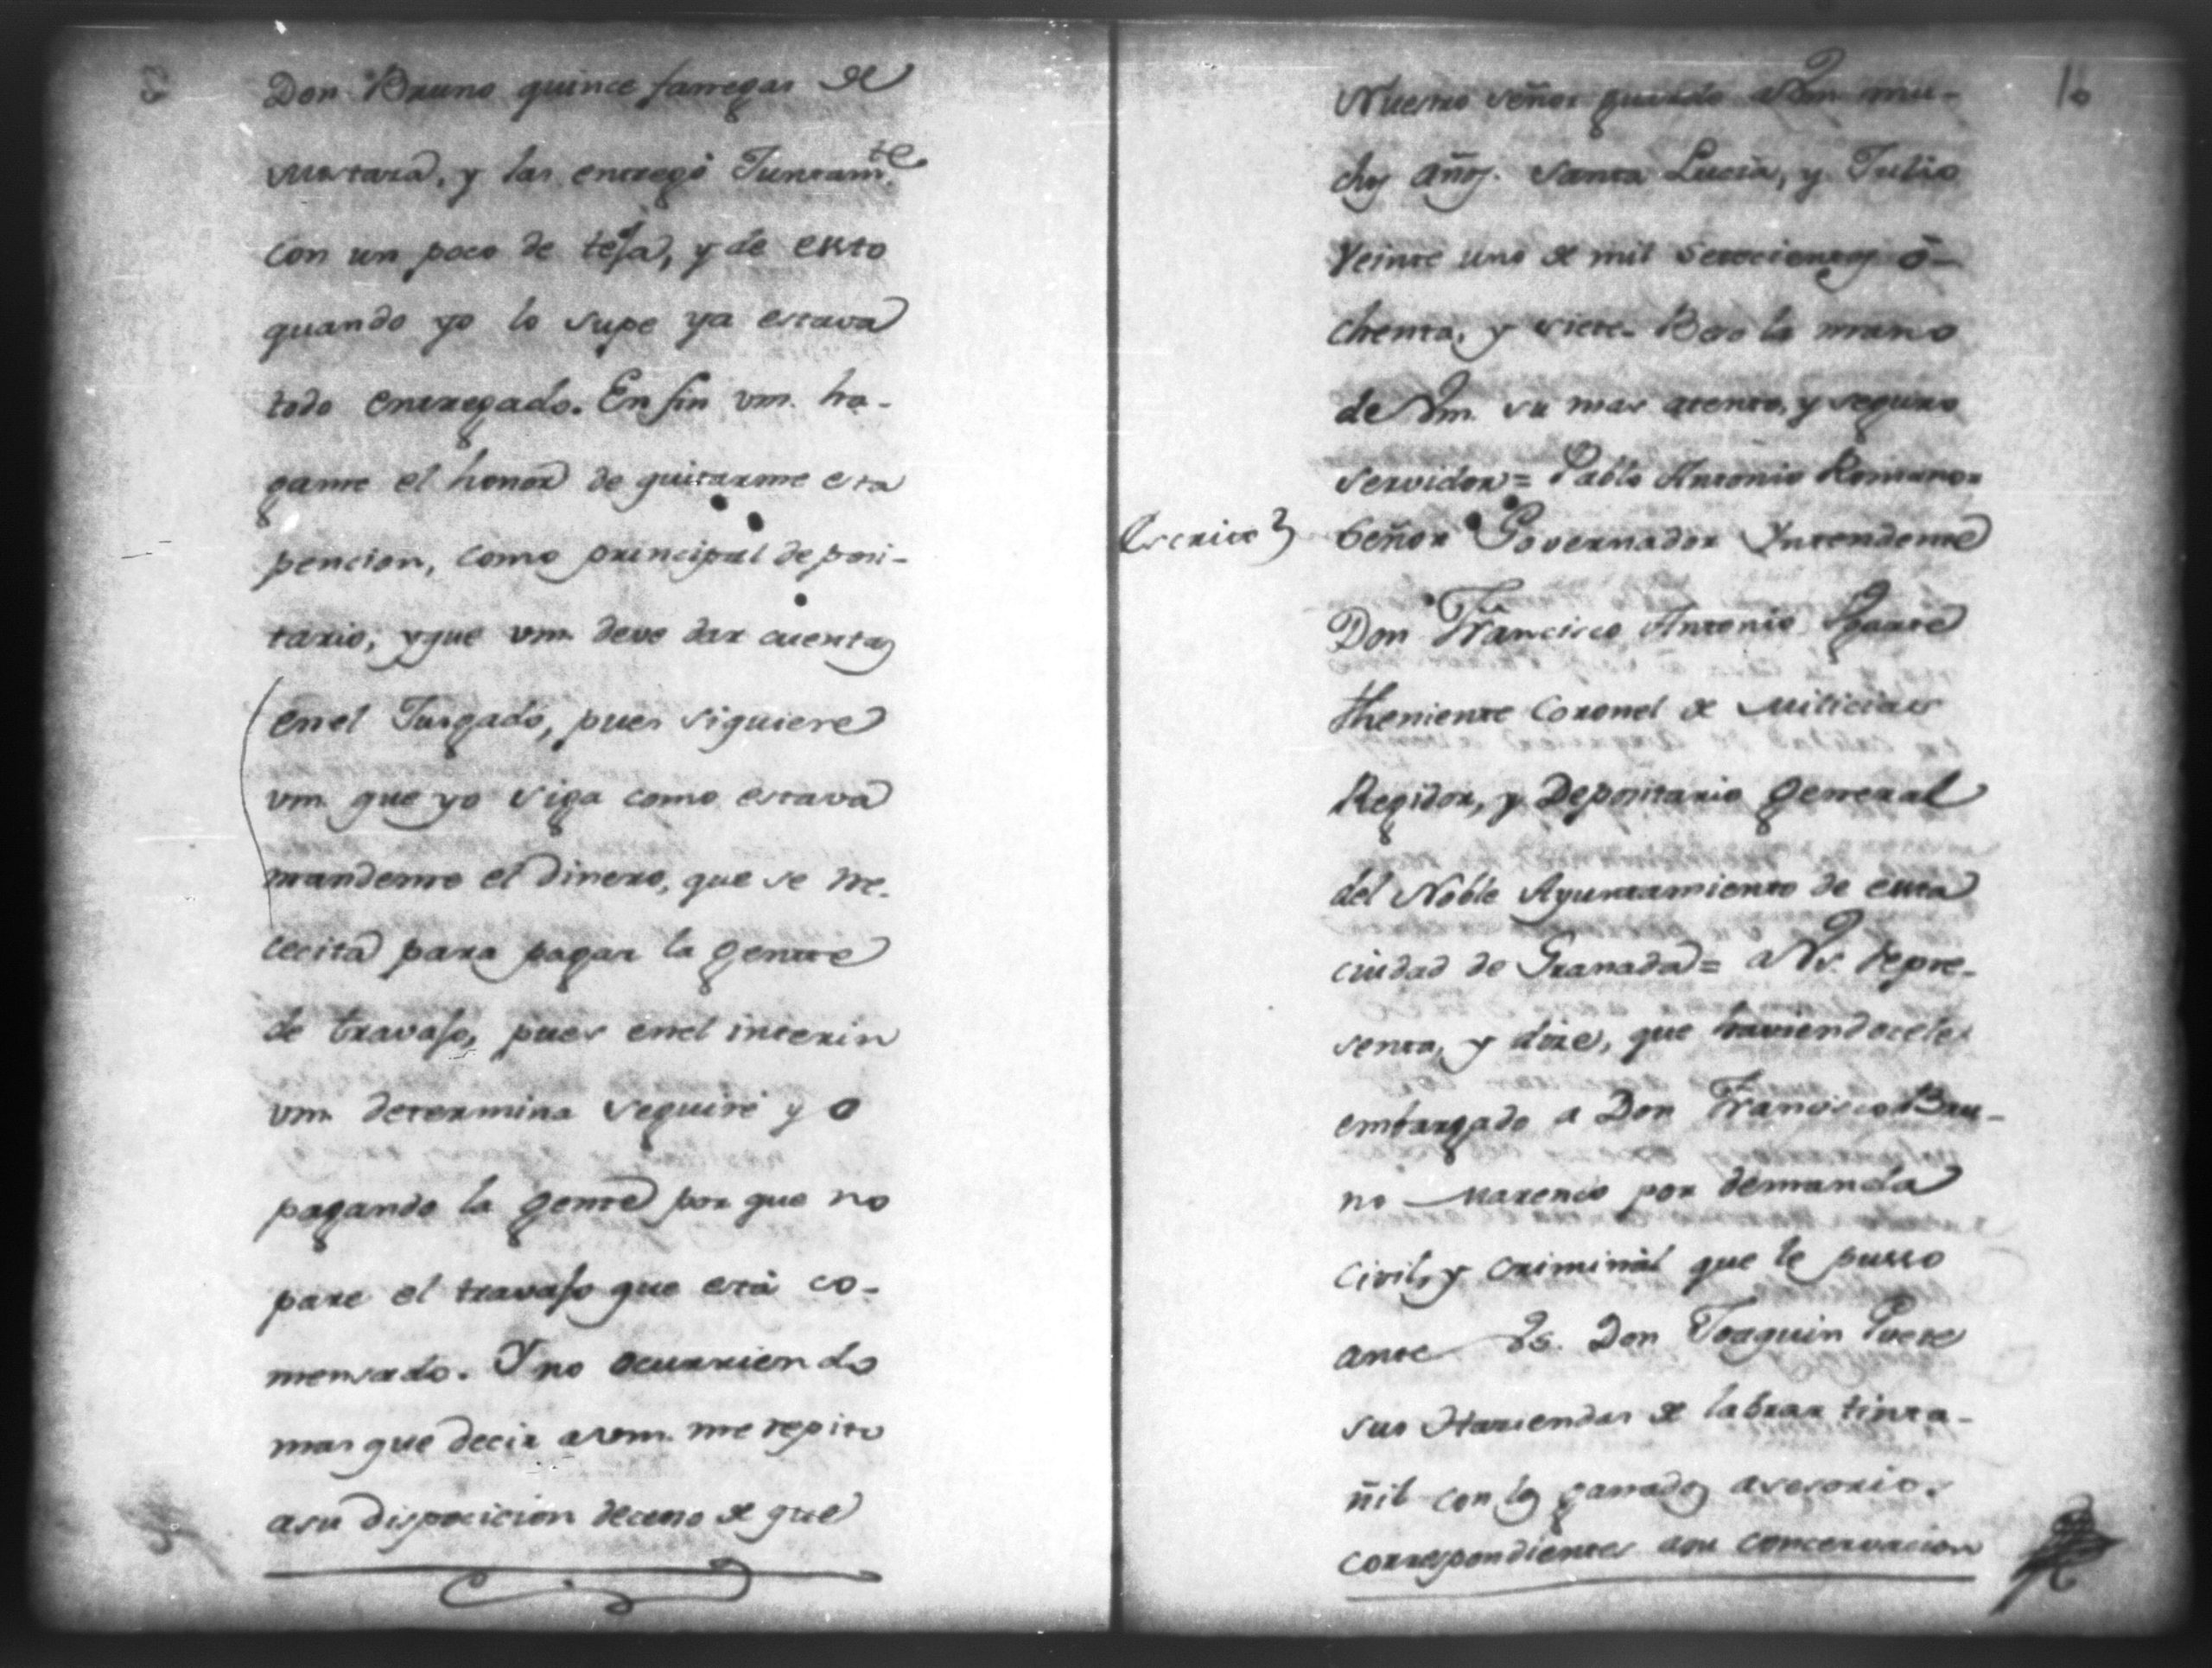 Don Bruno quince fanegas de
Mostaza, y las entregó Juntam.te
con un poco de teja, y de esto
quando yo lo supe ya estava
todo entregado. En fin vm. ha-
game el honor de quitarme esta
pencion, como principal deposi-
tario, y que vm. deve dar cuentas
en el Jusgado, pues siguiere
vm. que yo siga como estava
mandeme el dinero, que se ne-
cecita para pagar la gente
de travajo, pues en el interin
vm. determina seguiré yo
pagando la gente por que no
pare el travajo que está co-
mensado. Y no ocurriendo
mas que decir a vm. me repito
asu disposicion deceoso de que
16
Nuestro señor guarde a Vm. mu-
chos años. Santa Lucia, y Julio
Veinte uno de mil setecientos o-
chenta, y siete. Beso la mano
de Vm. su mas atento, y seguro
servidor = Pablo Antonio Romano =
Escrito Señor Governador Yntendente
Don Francisco Antonio Ugarte
theniente Coronel de Milicias
Regidor, y Depositario General
del Noble Ayuntamiento de esta
ciudad de Granada = a Vs. repre-
senta, y dize, que haviendocele
embargado a Don Francisco Bru-
no Marenco por demanda
Civil, y criminal que le pusso
ante Vs. Don Joaquin
sus Haziendas de labrar tinta-
ñil con los ganados asesorios
correspondientes asu concervacion